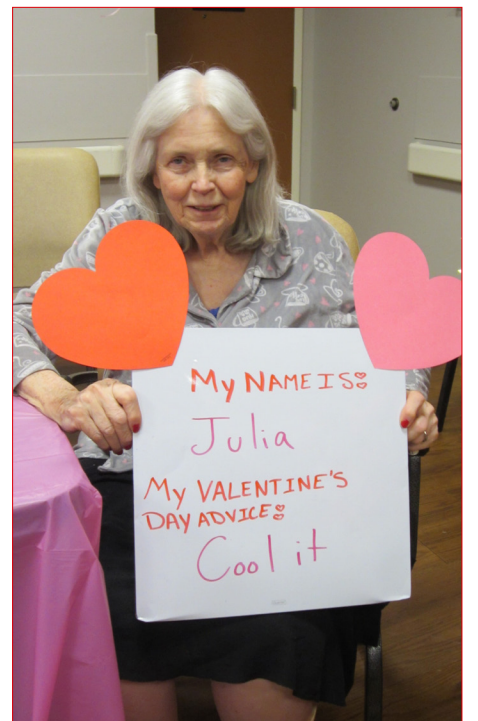 My NAME IS:
Julia
My VALENTINE'S
DAY ADVICE:
Cool it